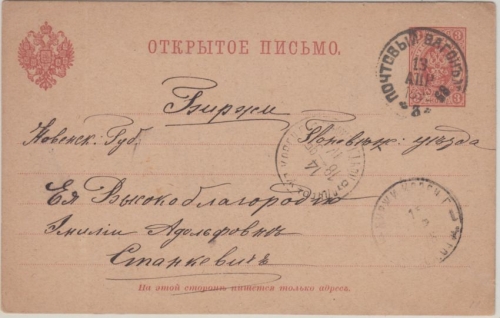 ОТКРЫТОЕ ПИСЬМО.
ПОЧТОВЫЙ ВАГОНЪ
13
АПР
3
Биржи
Ковенск. Губ. Поневѣж: уѣзда
14
Ея Высокоблагородію
Эмиліи Адольфовнѣ
Станкевичъ
На этой сторонѣ пишется только адресъ.